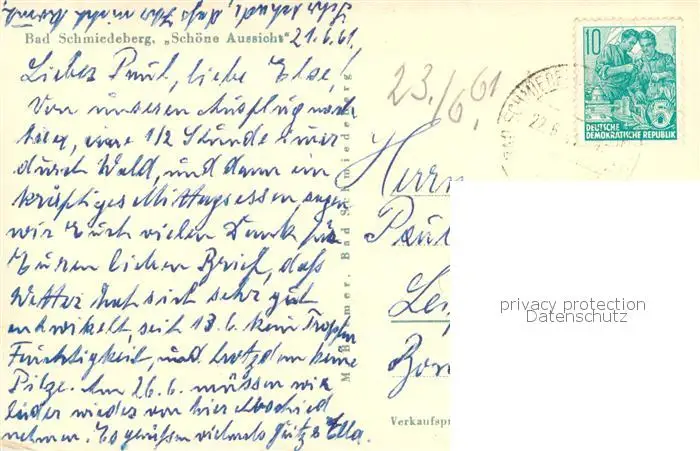 Sehr schade, daß Ihr nicht kommt.
Bad Schmiedeberg, „Schöne Aussicht"
21.6.61
Lieber Paul, liebe Else!
Von unserem Ausflug nach
hier, eine 1/2 Stunde immer
durch Wald, und dann ein
kräftiges Mittagessen, sagen
wir Euch vielen Dank für
Euren lieben Brief, daß
Wetter hat sich sehr gut
entwickelt, seit 13.6. kein Tropfen
Feuchtigkeit, und trotzdem keine
Pilze. Am 26.6. müssen wir
leider wieder von hier Abschied
nehmen. Es grüßen vielmals Fritz & Ella.
Bad Schmiedeberg
23./6.61
Herrn
Paul
Lei
Verkaufspr
10
DEUTSCHE
DEMOKRATISCHE REPUBLIK
BAD SCHMIEDE
22.6.
privacy protection
Datenschutz